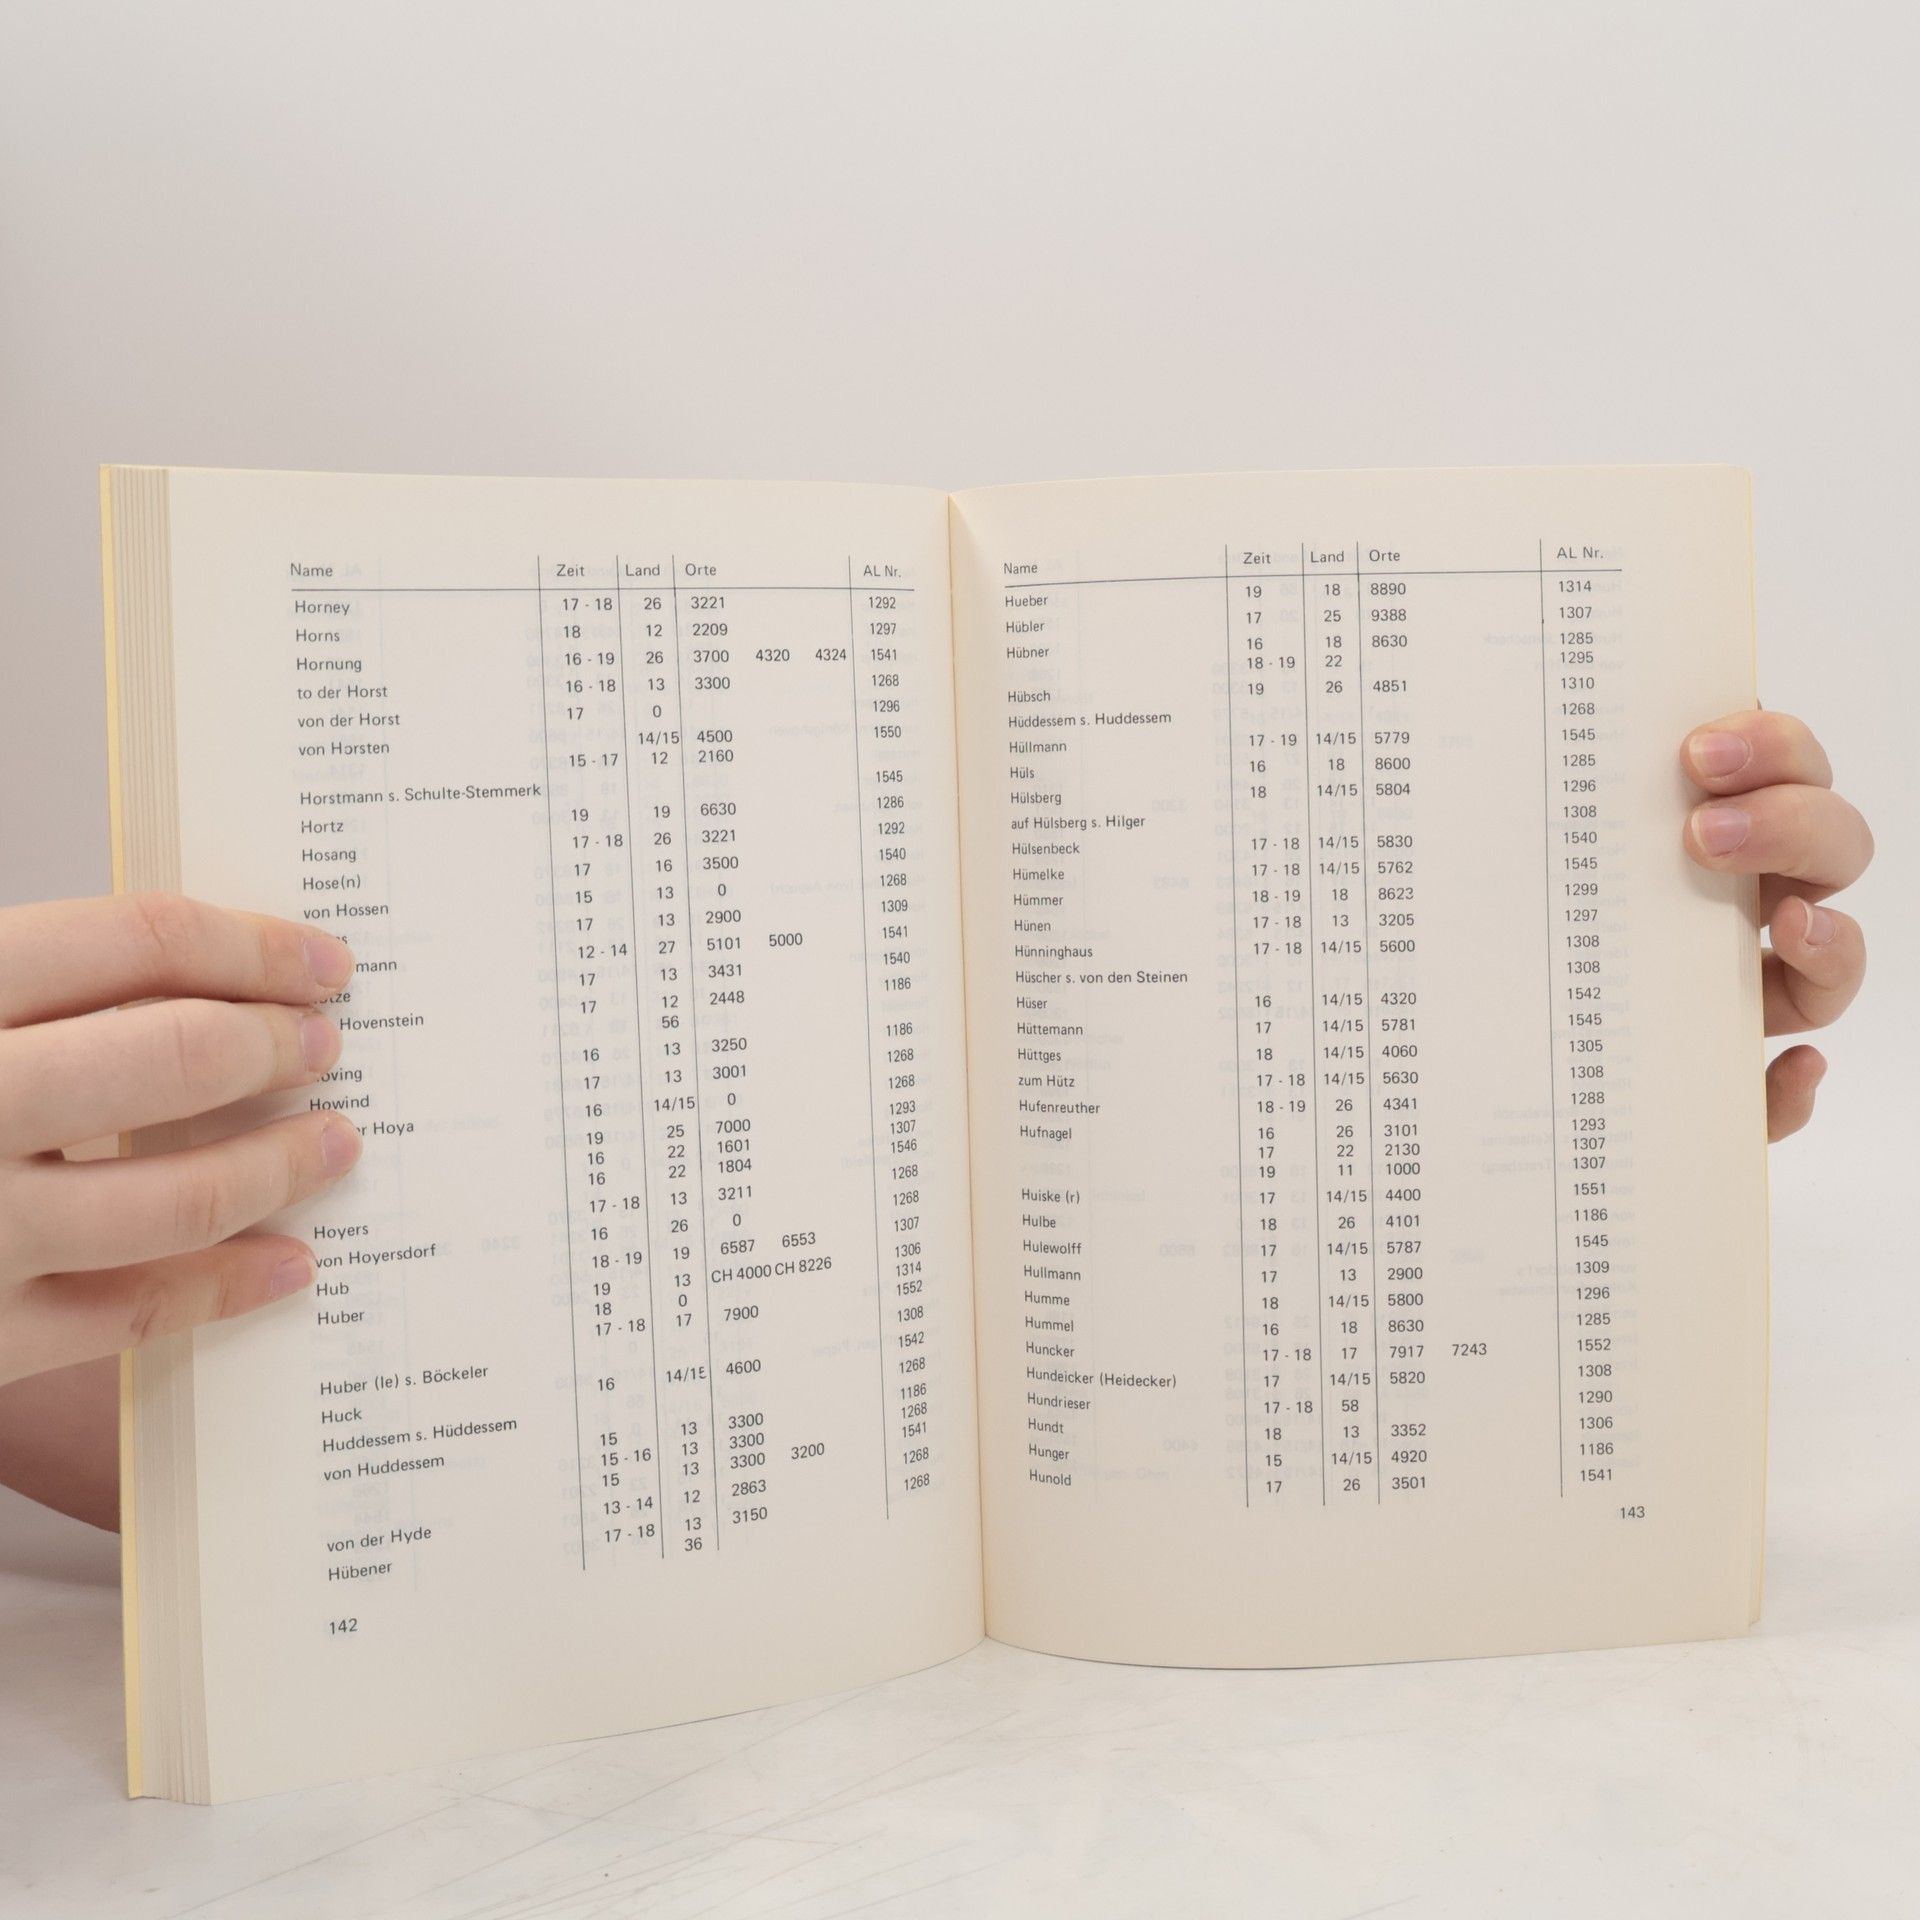 Name Zeit Land Orte AL Nr.
Horney 17 - 18 26 3221 1292
Horns 18 12 2209 1297
Hornung 16 - 19 26 3700 4320 4324 1541
to der Horst 16 - 18 13 3300 1268
von der Horst 17 0 1296
von Horsten 14/15 4500 1550
15 - 17 12 2160
Horstmann s. Schulte-Stemmerk 1545
Hortz 19 19 6630 1286
Hosang 17 - 18 26 3221 1292
Hose(n) 17 16 3500 1540
von Hossen 15 13 0 1268
17 13 2900 1309
12 - 14 27 5101 5000 1541
17 13 3431 1540
Hovenstein 17 12 2448 1186
56
16 13 3250 1186
Howind 17 13 3001 1268
Hoya 16 14/15 0 1268
19 25 7000 1293
16 22 1601 1307
16 22 1804 1546
Hoyers 17 - 18 13 3211 1268
von Hoyersdorf 16 26 0 1268
Hub 18 - 19 19 6587 6553 1307
Huber 19 13 CH 4000 CH 8226 1306
18 0 1314
17 - 18 17 7900 1552
Huber (le) s. Böckeler 1308
Huck 16 14/15 4600 1542
Huddessem s. Hüddessem 1268
von Huddessem 15 13 3300 1186
15 - 16 13 3300 1268
15 13 3300 3200 1541
von der Hyde 13 - 14 12 2863 1268
Hübener 17 - 18 13 3150 1268
36
142
Name Zeit Land Orte AL Nr.
Hueber 19 18 8890 1314
Hübler 17 25 9388 1307
Hübner 16 18 8630 1285
18 - 19 22 1295
Hübsch 19 26 4851 1310
Hüddessem s. Huddessem 1268
Hüllmann 17 - 19 14/15 5779 1545
Hüls 16 18 8600 1285
Hülsberg 18 14/15 5804 1296
auf Hülsberg s. Hilger 1308
Hülsenbeck 17 - 18 14/15 5830 1540
Hümelke 17 - 18 14/15 5762 1545
Hümmer 18 - 19 18 8623 1299
Hünen 17 - 18 13 3205 1297
Hünninghaus 17 - 18 14/15 5600 1308
Hüscher s. von den Steinen 1308
Hüser 16 14/15 4320 1542
Hüttemann 17 14/15 5781 1545
Hüttges 18 14/15 4060 1305
zum Hütz 17 - 18 14/15 5630 1308
Hufenreuther 18 - 19 26 4341 1288
Hufnagel 16 26 3101 1293
17 22 2130 1307
19 11 1000 1307
Huiske (r) 17 14/15 4400 1551
Hulbe 18 26 4101 1186
Hulewolff 17 14/15 5787 1545
Hullmann 17 13 2900 1309
Humme 18 14/15 5800 1296
Hummel 16 18 8630 1285
Huncker 17 - 18 17 7917 7243 1552
Hundeicker (Heidecker) 17 14/15 5820 1308
Hundrieser 17 - 18 58 1290
Hundt 18 13 3352 1306
Hunger 15 14/15 4920 1186
Hunold 17 26 3501 1541
143